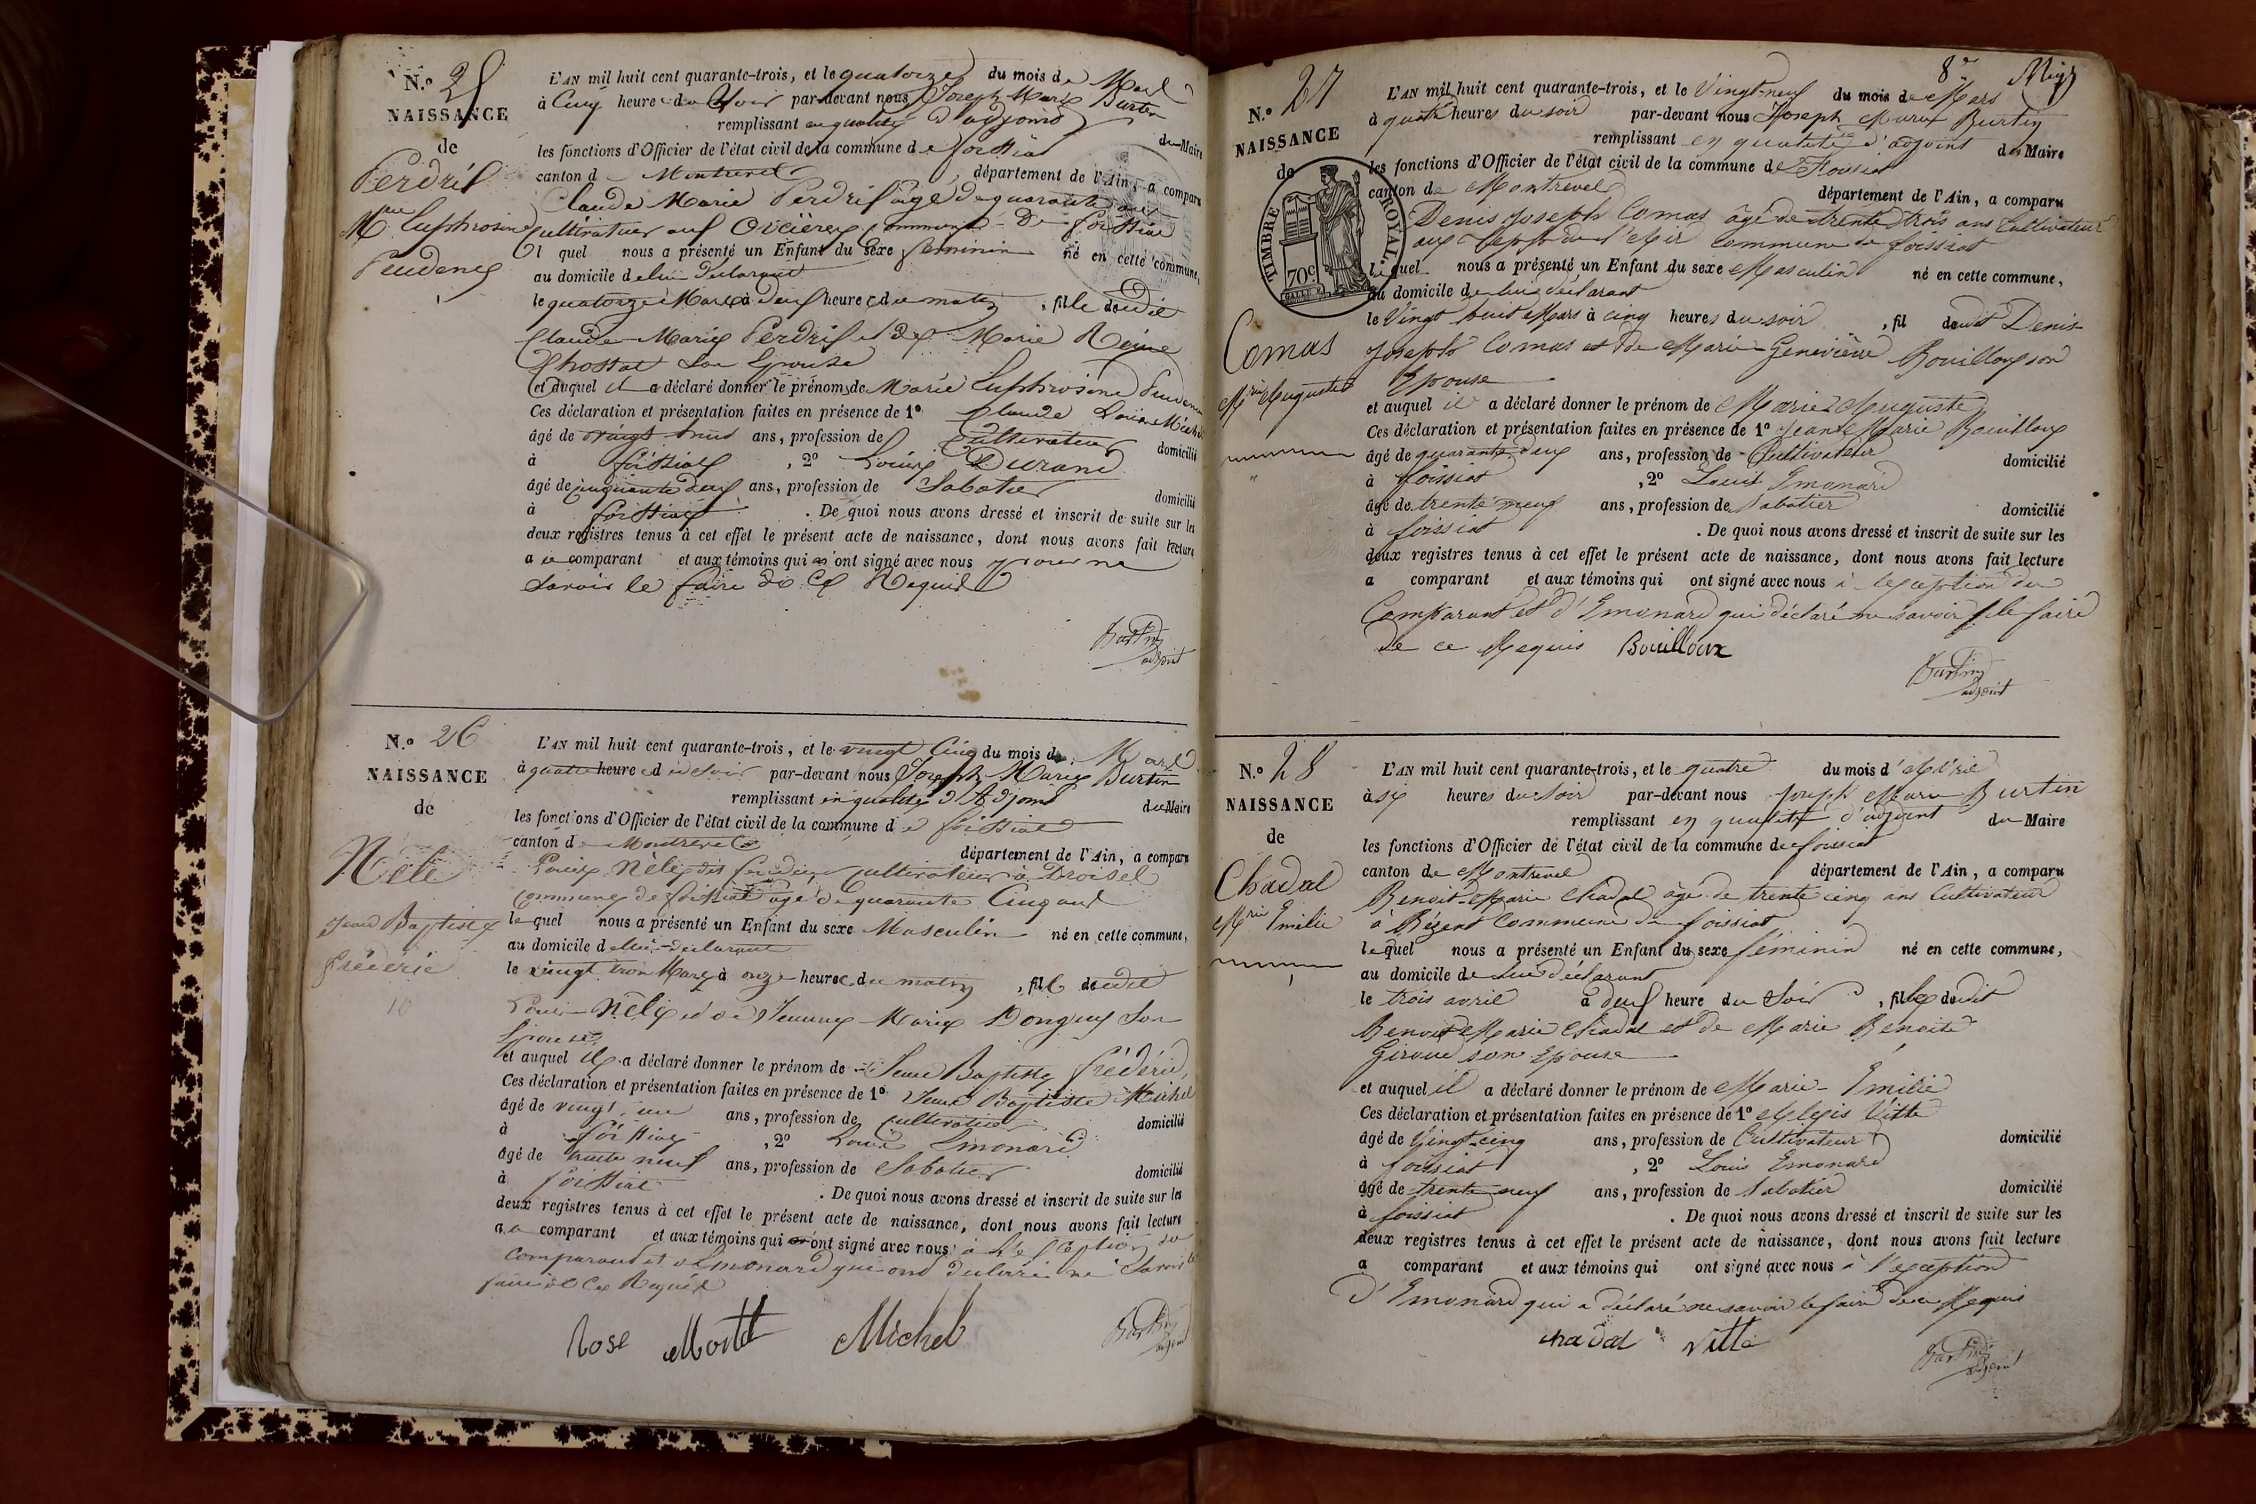 N.º 25
NAISSANCE
de
Perdrix
M.rie Euphrosine
Prudence
L'AN mil huit cent quarante-trois, et le quatorze du mois de Mars
à Cinq heures du Soir par-devant nous Joseph Marie Burtin
remplissant en qualité d'adjoint du Maire
les fonctions d'Officier de l'état civil de la commune de foissiat
canton de Montrevel département de l'Ain, a comparu
Claude Marie Perdrix âgé de quarante ans
Cultivateur aux commune de foissiat
lequel nous a présenté un Enfant du sexe féminin né en cette commune,
au domicile de lui déclarant
le quatorze Mars à deux heures du matin, fille dudit
Claude Marie Perdrix et de Marie Reine
Chossat son Epouse
et auquel il a déclaré donner le prénoms de Marie Euphrosine Prudence
Ces déclaration et présentation faites en présence de 1º Claude Louis Michel
âgé de vingt huit ans, profession de Cultivateur domicilié
à foissiat, 2º Louis Durand
âgé de cinquante deux ans, profession de Sabotier domicilié
à foissiat. De quoi nous avons dressé et inscrit de suite sur les
deux registres tenus à cet effet le présent acte de naissance, dont nous avons fait lecture
au comparant et aux témoins qui n'ont signé avec nous pour ne
savoir le faire de ce Requis
Burtin
adjoint
N.º 26
NAISSANCE
de
Nèle
Jean Baptiste
fréderic
10
L'AN mil huit cent quarante-trois, et le vingt Cinq du mois de Mars
à quatre heures du soir par-devant nous Joseph Marie Burtin
remplissant en qualité d'Adjoint du Maire
les fonctions d'Officier de l'état civil de la commune de foissiat
canton de Montrevel département de l'Ain, a comparu
Louis Nèle dit cultivateur à Droisel
Commune de foissiat âgé de quarante Cinq ans
lequel nous a présenté un Enfant du sexe Masculin né en cette commune,
au domicile de lui déclarant
le vingt trois Mars à onze heures du matin, fils dudit
Louis Nèle et de Jeanne Marie Donguy son
Epouse
et auquel il a déclaré donner le prénom de Jean Baptiste frédéric
Ces déclaration et présentation faites en présence de 1º Jean Baptiste Michel
âgé de vingt un ans, profession de cultivateur domicilié
à foissiat, 2º Louis Emonard
âgé de trente neuf ans, profession de Sabotier domicilié
à foissiat. De quoi nous avons dressé et inscrit de suite sur les
deux registres tenus à cet effet le présent acte de naissance, dont nous avons fait lecture
au comparant et aux témoins qui ont signé avec nous à l'exception du
comparant et d'Emonard qui ont déclaré ne savoir le
faire de ce Requis
Rose Michel Burtin
adjoint
8.e
N.º 27
NAISSANCE
de
TIMBRE ROYAL
70c
Comas
M.rie Auguste
L'AN mil huit cent quarante-trois, et le Vingt-neuf du mois de Mars
à quatre heures du soir par-devant nous Joseph Marie Burtin
remplissant en qualité d'adjoint du Maire
les fonctions d'Officier de l'état civil de la commune de Foissiat
canton de Montrevel département de l'Ain, a comparu
Denis Joseph Comas âgé de trente trois ans Cultivateur
aux commune de foissiat
lequel nous a présenté un Enfant du sexe Masculin né en cette commune,
au domicile de lui déclarant
le Vingt huit Mars à cinq heures du soir, fil dudit Denis-
Joseph Comas et de Marie-Geneviève Bouilloux son
Epouse
et auquel il a déclaré donner le prénom de Marie Auguste
Ces déclaration et présentation faites en présence de 1º Jean Marie Bouilloux
âgé de quarante deux ans, profession de Cultivateur domicilié
à foissiat, 2º Louis Emonard
âgé de trente neuf ans, profession de Sabotier domicilié
à foissiat. De quoi nous avons dressé et inscrit de suite sur les
deux registres tenus à cet effet le présent acte de naissance, dont nous avons fait lecture
a comparant et aux témoins qui ont signé avec nous à l'exception du
Comparant et d'Emonard qui déclaré ne savoir le faire
De ce Requis Bouilloux
Burtin
adjoint
N.º 28
NAISSANCE
de
Chadal
M.rie Emilie
L'AN mil huit cent quarante-trois, et le quatre du mois d'Avril
à six heures du soir par-devant nous Joseph Marie Burtin
remplissant en qualité d'adjoint du Maire
les fonctions d'Officier de l'état civil de la commune de foissiat
canton de Montrevel département de l'Ain, a comparu
Benoit-Marie Chadal âgé de trente cinq ans Cultivateur
à Bézent Commune de foissiat
lequel nous a présenté un Enfant du sexe féminin né en cette commune,
au domicile de lui déclarant
le trois avril à deux heure du Soir, fille dudit
Benoit Marie Chadal et de Marie Benoite
Giroud son Epouse
et auquel il a déclaré donner le prénom de Marie-Emilie
Ces déclaration et présentation faites en présence de 1º Alexis Vitte
âgé de Vingt-cinq ans, profession de Cultivateur domicilié
à foissiat, 2º Louis Emonard
âgé de trente neuf ans, profession de Sabotier domicilié
à foissiat. De quoi nous avons dressé et inscrit de suite sur les
deux registres tenus à cet effet le présent acte de naissance, dont nous avons fait lecture
a comparant et aux témoins qui ont signé avec nous à l'exception
d'Emonard qui a déclaré ne savoir le faire de ce Requis
chadal Vitte
Burtin
adjoint